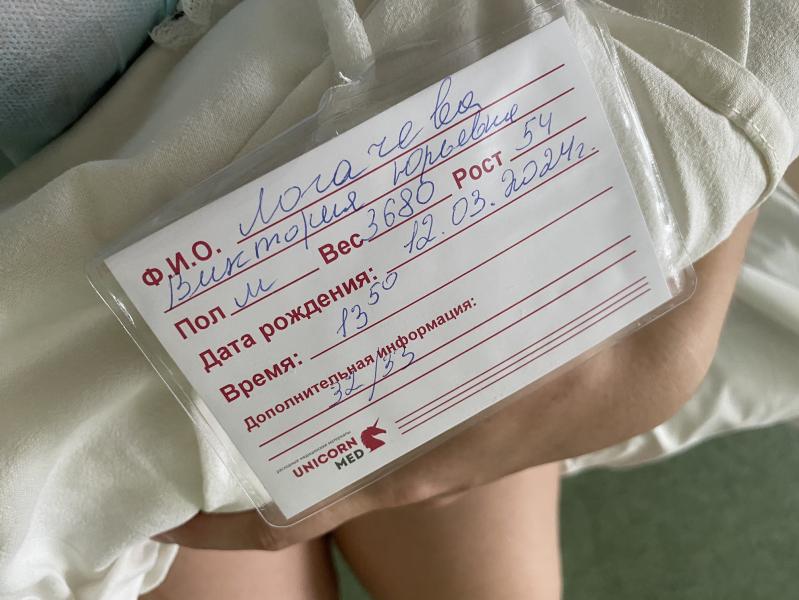 Ф.И.О. Логачева
Виктория Юрьевна
Пол м Вес 3680 Рост 54
Дата рождения: 12.03.2024г.
Время: 13 50
Дополнительная информация:
32/33
расходные медицинские материалы
UNICORN
MED